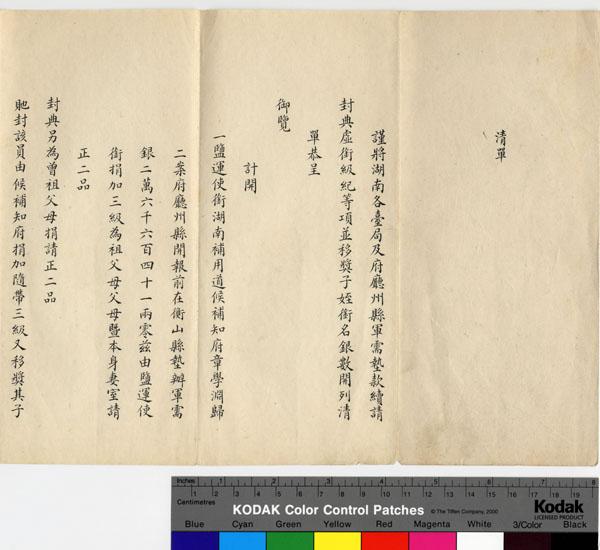 清單
謹將湖南各臺局及府廳州縣軍需墊款續請
封典虛銜級紀等項並移獎子姪銜名銀數開列清
單恭呈
御覽
計開
一鹽運使銜湖南補用道候補知府章學淵歸
二案府廳州縣開報前在衡山縣墊辦軍需
銀二萬六千六百四十一兩零茲由鹽運使
銜捐加三級為祖父母父母暨本身妻室請
正二品
封典另為曾祖父母捐請正二品
貤封該員由候補知府捐加隨帶三級又移獎其子
Inches 1 2 3 4 5 6 7 8
Centimetres 1 2 3 4 5 6 7 8 9 10 11 12 13 14 15 16 17 18 19
KODAK Color Control Patches © The Tiffen Company, 2000 Kodak
LICENSED PRODUCT
Blue Cyan Green Yellow Red Magenta White 3/Color Black